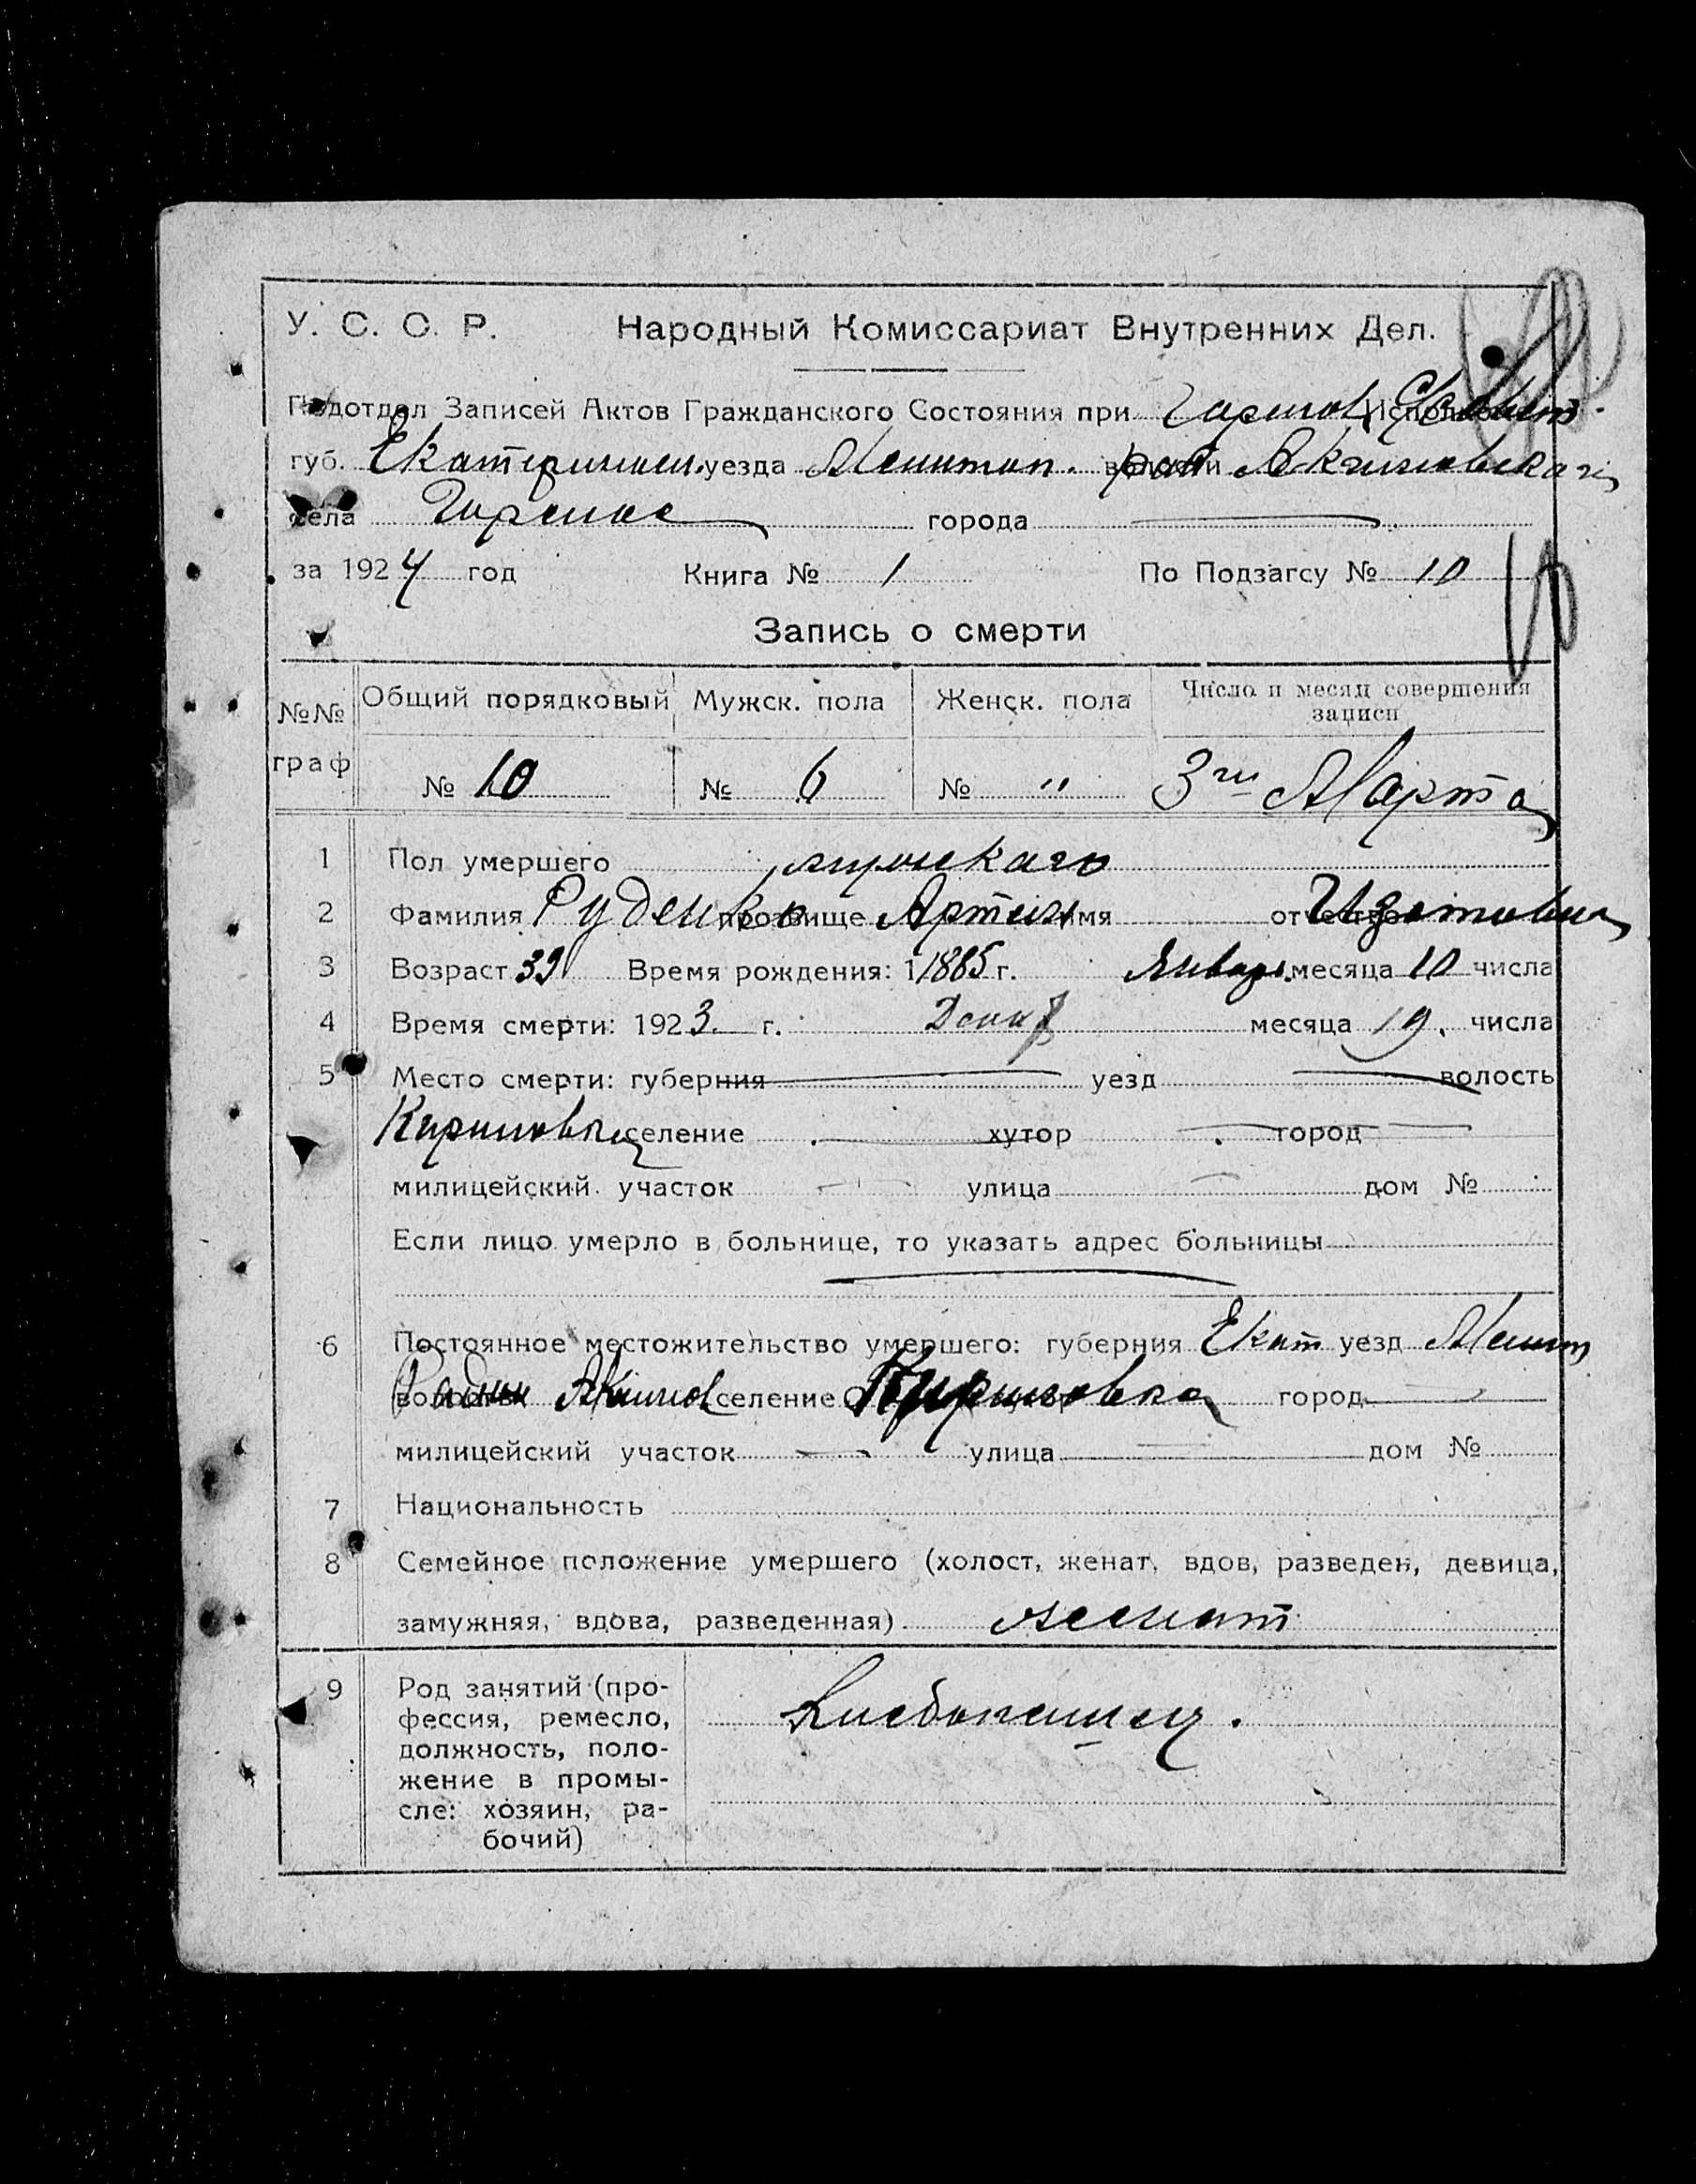 У. С. С. Р. Народный Комиссариат Внутренних Дел.
Подотдел Записей Актов Гражданского Состояния при
губ. Екатеринос. уезда Мелитоп. волости рай Акимовскаго
села города
за 1924 год Книга № 1 По Подзагсу № 10
Запись о смерти
№№ граф Общий порядковый Мужск. пола Женск. пола Число и месяц совершения записи
№ 10 № 6 № " 3го Марта
1 Пол умершего мужскаго
2 Фамилия Руденко прозвище Артем имя отчество Изотович
3 Возраст 39 Время рождения: 1 1885 г. Январь. месяца 10 числа
4 Время смерти: 1923 г. Декаб месяца 19. числа
5 Место смерти: губерния уезд волость
селение хутор город
милицейский участок улица дом №
Если лицо умерло в больнице, то указать адрес больницы
6 Постоянное местожительство умершего: губерния Екат уезд Мелит
волость Акимов селение город
милицейский участок улица дом №
7 Национальность
8 Семейное положение умершего (холост, женат, вдов, разведен, девица,
замужняя, вдова, разведенная) женат
9 Род занятий (про-
фессия, ремесло, Хлебопашец.
должность, поло-
жение в промы-
сле: хозяин, ра-
бочий)